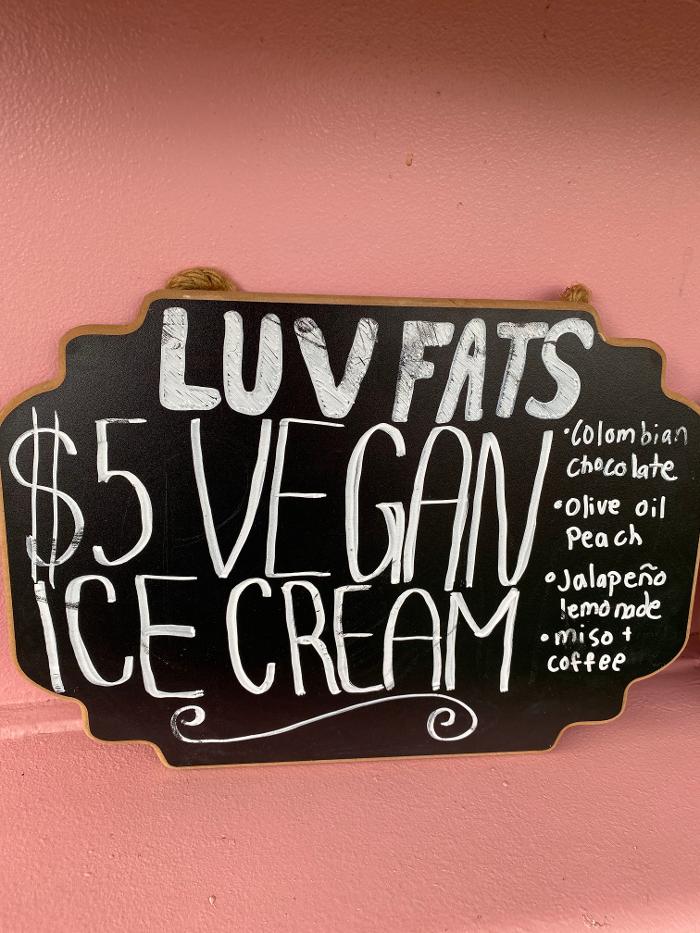 LUV FATS
$5 VEGAN
ICE CREAM
•Colombian
chocolate
•Olive oil
Peach
•Jalapeño
lemonade
•miso +
coffee